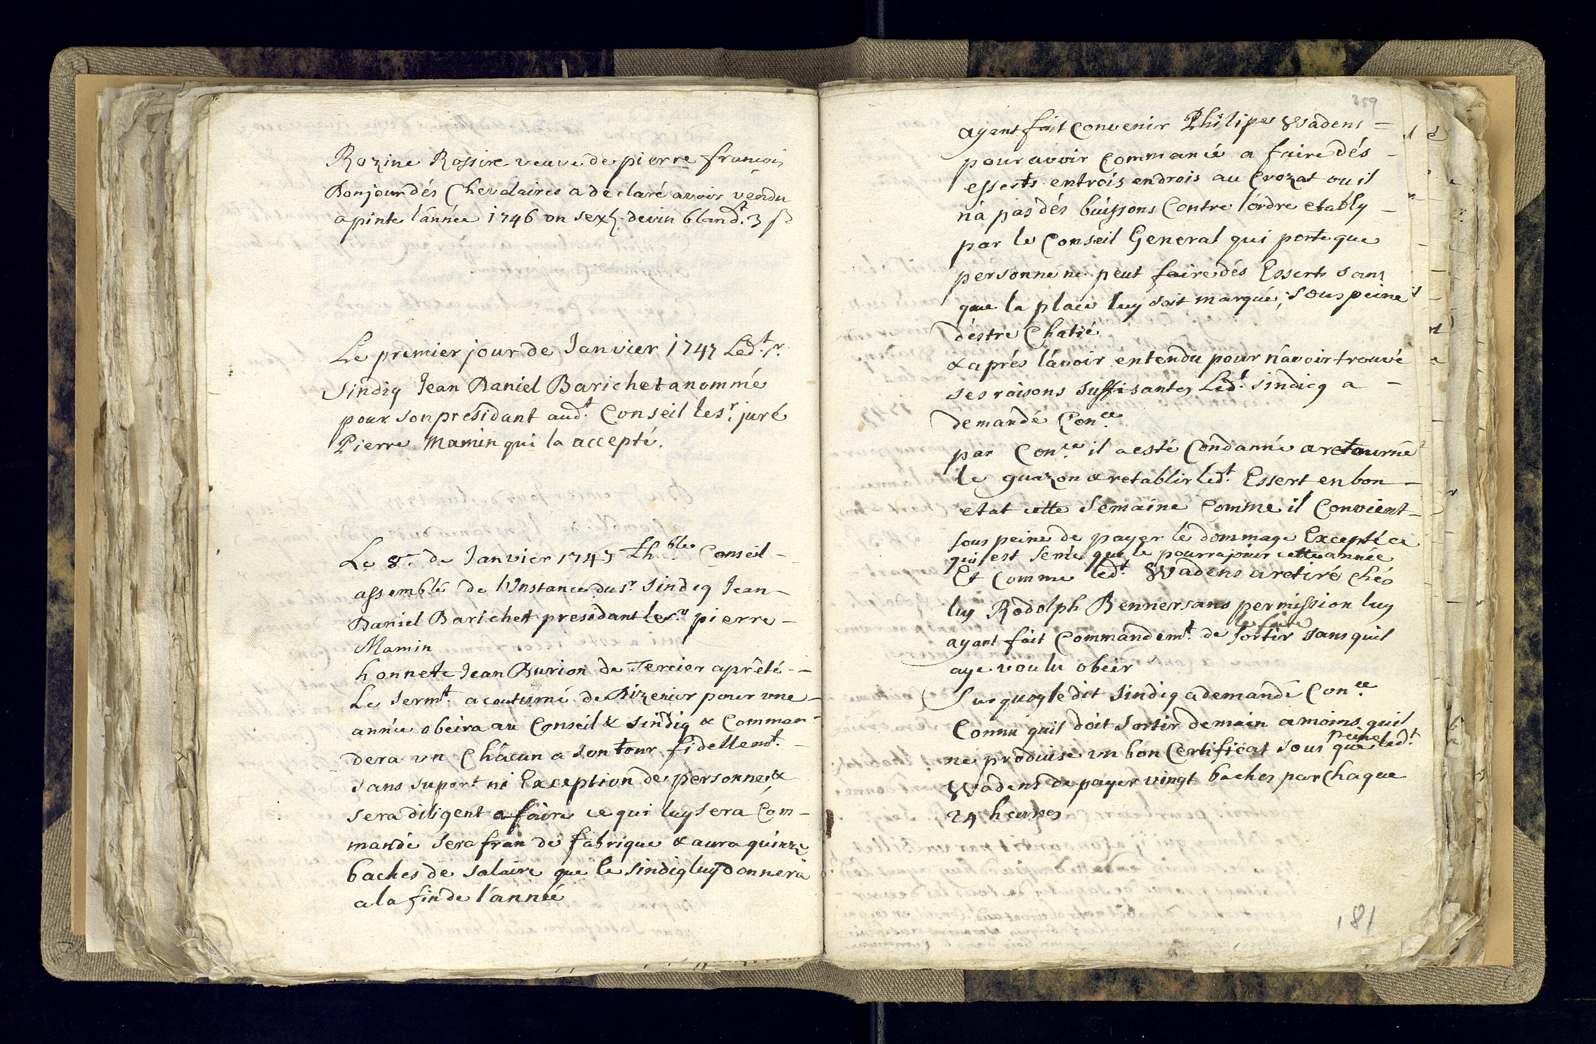 Rozine Rossire veuve de pierre francois
Bonjour dés Chevalaires a declaré avoir vendu
a pinte lannée 1746 un sex.r de vin bland.t 3 f
Le premier jour de Janvier 1747 Led.t Sr.
Sindiq Jean Daniel Barichet a nommé
pour son presidant aud.t Conseil le Sr. juré
Pierre Mamin qui la accepté.
Le 8e. de Janvier 1747 Lh.ble Conseil -
assemblé de linstance du Sr. Sindiq Jean -
Daniel Barichet presidant le Sr. pierre -
Mamin
honnete Jean Burion de Tercier a preté -
Le Serm.t acoutumé de Dizenier pour une -
année obeira au Conseil & Sindiq & Comman-
dera un Châcun a son tour fidellem.t -
sans suport ni Exception de personne, &
sera diligent a faire ce qui luy sera Com-
mandé sera fran de fabrique & aura quinze
baches de salaire que le Sindiq luy donnera
a la fin de l'année
259
ayant fait Convenir Philipe Wadens =
pour avoir Commancé a faire dés -
esserts en trois endrois au Crozat ou il
n'a pas dés buissons Contre lordre etably -
par le Conseil General qui porte que
personne ne peut faire dés Esserts sans
que la place luy soit marqué, sous peine
déstre Chatié
& aprés lavoir entendu pour n'avoir trouvé
ses raisons suffisantes Led.t Sindicq a -
demandé Con.ce
par Con.ce il a esté Condanné a retourné
le guazon & retablir led.t Essert en bon -
etat cette Semaine Comme il Convient -
sous peine de payer le dommage Excepté ce
qui est semé que le pourra jouir cette année
Et Comme led.t Wadens a retiré chés
luy Rodolph Bennier sans permission luy
ayant fait Commandem.t de le faire sortir sans quil
aye voulu obeir
Sur quoy le dit Sindiq a demandé Con.ce
Connu quil doit sortir demain a moins quil
ne produise un bon Certificat sous peine que led.t
Wadens de payer vingt baches par Chaque
24 heures
181